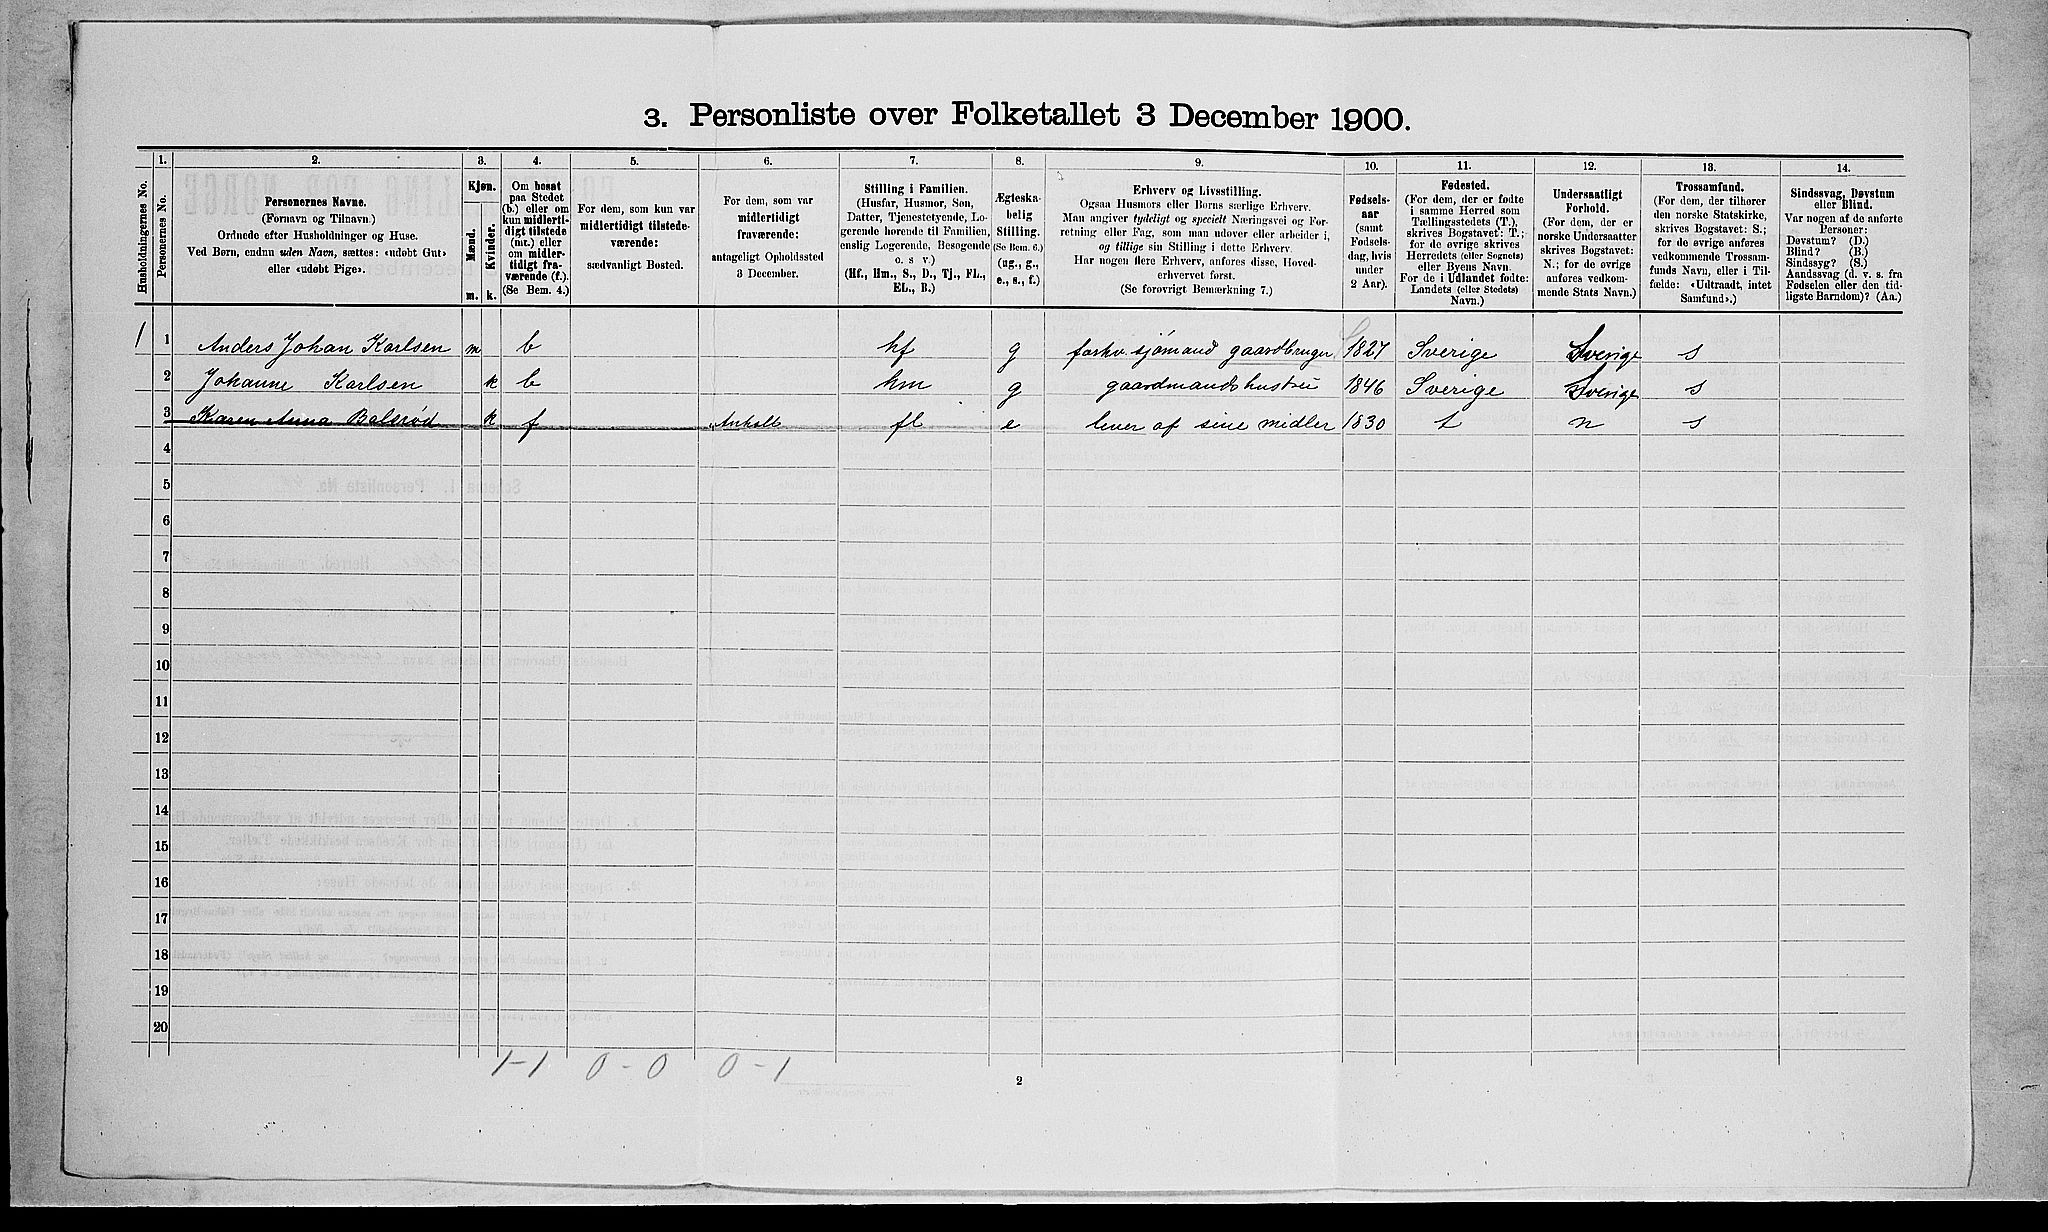 3. Personliste over Folketallet 3 December 1900.
Husholdningernes No.
1.
Personernes No.
2.
Personernes Navne.
(Fornavn og Tilnavn.)
Ordnede efter Husholdninger og Huse.
Ved Børn, endnu uden Navn, sættes: «udøbt Gut»
eller «udøbt Pige».
3.
Kjøn.
Mænd.
Kvinder.
m. k.
4.
Om bosat
paa Stedet
(b.) eller om
kun midlerti-
digt tilstede
(mt.) eller
om midler-
tidigt fra-
værende (f.).
(Se Bem. 4.)
5.
For dem, som kun var
midlertidigt tilstede-
værende:
sædvanligt Bosted.
6.
For dem, som var
midlertidigt
fraværende:
antageligt Opholdssted
3 December.
7.
Stilling i Familien.
(Husfar, Husmor, Søn,
Datter, Tjenestetyende, Lo-
gerende hørende til Familien,
enslig Logerende, Besøgende
o. s v.)
(Hf., Hm., S., D., Tj., FL.,
EL., B.)
8.
Ægteska-
belig
Stilling.
(Se Bem. 6.)
(ug., g.,
e., s., f.)
9.
Erhverv og Livsstilling.
Ogsaa Husmors eller Børns særlige Erhverv.
Man angiver tydeligt og specielt Næringsvei og For-
retning eller Fag, som man udøver eller arbeider i,
og tillige sin Stilling i dette Erhverv.
Har nogen flere Erhverv, anføres disse, Hoved-
erhvervet først.
(Se forøvrigt Bemærkning 7.)
10.
Fødsels-
aar
(samt
Fødsels-
dag, hvis
under
2 Aar).
11.
Fødested.
(For dem, der er fødte
i samme Herred som
Tællingsstedets (T.),
skrives Bogstavet: T.;
for de øvrige skrives
Herredets (eller Sognets)
eller Byens Navn.
For de i Udlandet fødte:
Landets (eller Stedets)
Navn.)
12.
Undersaatligt
Forhold.
(For dem, der er
norske Undersaatter
skrives Bogstavet:
N.; for de øvrige
anføres vedkom-
mende Stats Navn.)
13.
Trossamfund.
(For dem, der tilhører
den norske Statskirke,
skrives Bogstavet: S.;
for de øvrige anføres
vedkommende Trossam-
funds Navn, eller i Til-
fælde: «Udtraadt, intet
Samfund».)
14.
Sindssvag, Døvstum
eller Blind.
Var nogen af de anførte
Personer:
Døvstum? (D.)
Blind? (B.)
Sindssyg? (S.)
Aandssvag (d. v. s. fra
Fødselen eller den tid-
ligste Barndom)? (Aa.)
1 1 Anders Johan Karlsen m b hf g forhv. sjømand gaardbruger 1827 Sverige Sverige s
2 Johanne Karlsen k b hm g gaardmandshustru 1846 Sverige Sverige s
3 Karen Anna Bolsrød k f Anholt fl e lever af sine midler 1830 t n s
4
5
6
7
8
9
10
11
12
13
14
15
16
17
18
19
20
1-1 0-0 0-1
2